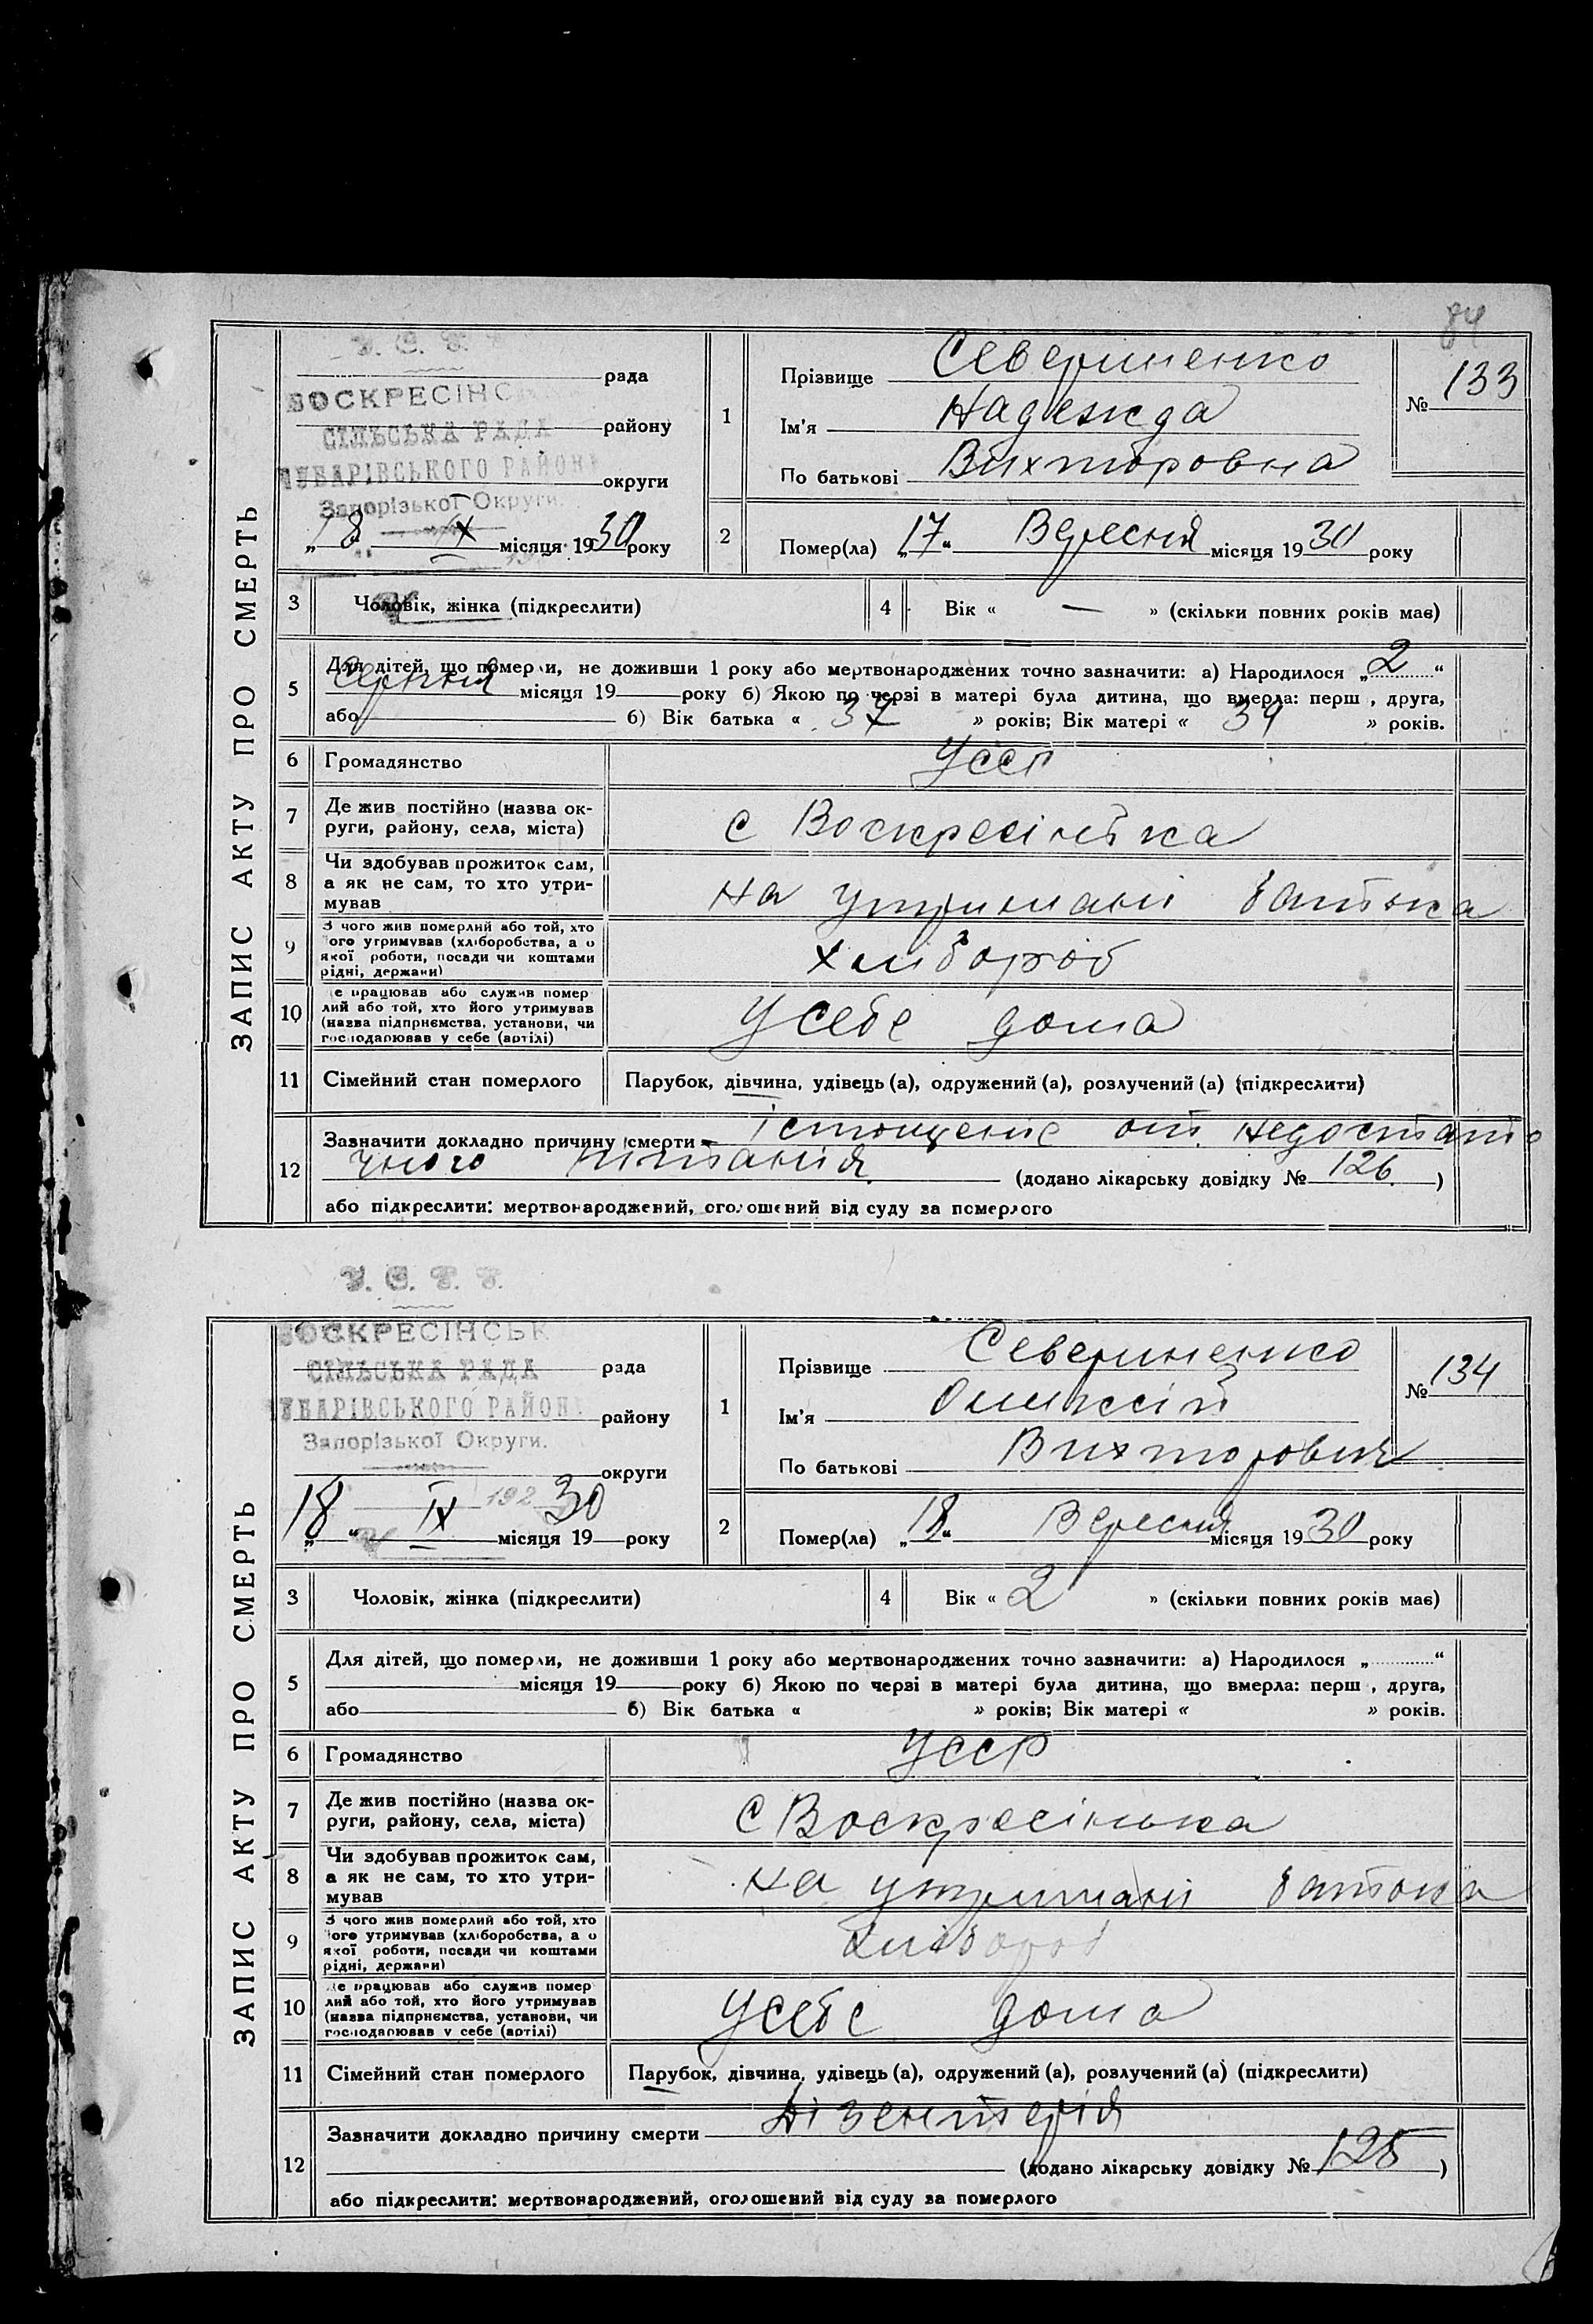 84
ЗАПИС АКТУ ПРО СМЕРТЬ
У. С. Р. Р.
ВОСКРЕСІНС
СІЛЬСЬКА РАДА
ЧУБАРІВСЬКОГО РАЙОНУ
Запорізької Округи.
рада
району
округи
„18" IX місяця 1930 року
1
Прізвище Севериненко
Ім'я Надежда
По батькові Вихторовна
№ 133
2
Помер(ла) „17" Вересня місяця 1930 року
3 Чоловік, жінка (підкреслити)
4 Вік « — » (скільки повних років має)
5 Для дітей, що померли, не доживши 1 року або мертвонароджених точно зазначити: а) Народилося „2"
Серпня місяця 19 року б) Якою по черзі в матері була дитина, що вмерла: перш , друга,
або б) Вік батька « 37 » років; Вік матері « 34 » років.
6 Громадянство УССР
7 Де жив постійно (назва ок-
руги, району, села, міста)
с Воскресінька
8 Чи здобував прожиток сам,
а як не сам, то хто утри-
мував
на утримані батька
9 З чого жив померлий або той, хто
його утримував (хліборобства, а о
якої роботи, посади чи коштами
рідні, держави)
хлібороб
10 Де працював або служив помер
лий або той, хто його утримував
(назва підприємства, установи, чи
господарював у себе (артілі)
У себе дома
11 Сімейний стан померлого Парубок, дівчина, удівець (а), одружений (а), розлучений (а) (підкреслити)
12 Зазначити докладно причину смерти істощение от недостато
чного питания (додано лікарську довідку № 126. )
або підкреслити: мертвонароджений, оголошений від суду за померлого
ЗАПИС АКТУ ПРО СМЕРТЬ
У. С. Р. Р.
ВОСКРЕСІНСЬК
СІЛЬСЬКА РАДА
ЧУБАРІВСЬКОГО РАЙОНУ
Запорізької Округи.
рада
району
округи
192
„18" IX 30 місяця 19 року
1
Прізвище Севериненко
Ім'я Олексій
По батькові Вихторович
№ 134
2
Помер(ла) „18" Вересня місяця 1930 року
3 Чоловік, жінка (підкреслити)
4 Вік « 2 » (скільки повних років має)
5 Для дітей, що померли, не доживши 1 року або мертвонароджених точно зазначити: а) Народилося „ "
місяця 19 року б) Якою по черзі в матері була дитина, що вмерла: перш , друга,
або б) Вік батька « » років; Вік матері « » років.
6 Громадянство УССР
7 Де жив постійно (назва ок-
руги, району, села, міста)
с Воскресінька
8 Чи здобував прожиток сам,
а як не сам, то хто утри-
мував
на утримані батька
9 З чого жив померлий або той, хто
його утримував (хліборобства, а о
якої роботи, посади чи коштами
рідні, держави)
хлібороб
10 Де працював або служив помер
лий або той, хто його утримував
(назва підприємства, установи, чи
господарював у себе (артілі)
У себе дома
11 Сімейний стан померлого Парубок, дівчина, удівець (а), одружений (а), розлучений (а) (підкреслити)
12 Зазначити докладно причину смерти Дізентерія
(додано лікарську довідку № 125 )
або підкреслити: мертвонароджений, оголошений від суду за померлого